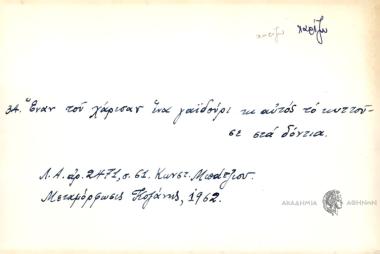 χαρίζω
34. Ἕναν τοῦ χάρισαν ἕνα γαϊδούρι κι αὐτός τό κυττοῦ-
σε στά δόντια.
Λ.Α. ἀρ. 2471, σ. 61. Κωνστ. Μπατζίου.
Μεταμόρφωσις Κοζάνης, 1962.
ΑΚΑΔΗΜΙΑ ΑΘΗΝΩΝ